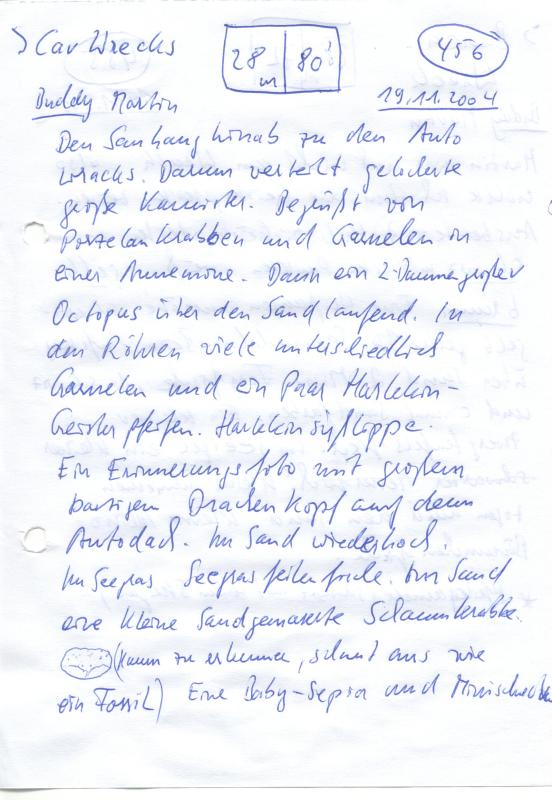 > Car Wrecks
28 m 80'
456
Buddy Martin
19.11.2004
Den Sanhang hinab zu den Auto
wracks. Darum verteilt gelöcherte
große Kanister. Begrüßt von
Porzelankrabben und Garnelen in
einer Annemone. Dann ein 2-Daumengroßer
Octopus über den Sand laufend. In
den Röhren viele unterschiedlich
Garnelen und ein Paar Harlekin-
Geister pfeifen. Harlekin süßlippe.
Ein Erinnerungsfoto mit großem
bartigem Drachen Kopf auf dem
Autodach. Im Sand wieder hoch.
Im Seegras Seegrasfeilenfische. Im Sand
eine kleine Sandgemaserte Schamkrabbe.
(Kaum zu erkennen, schaut aus wie
ein Fossil) Eine Baby-Sepia und